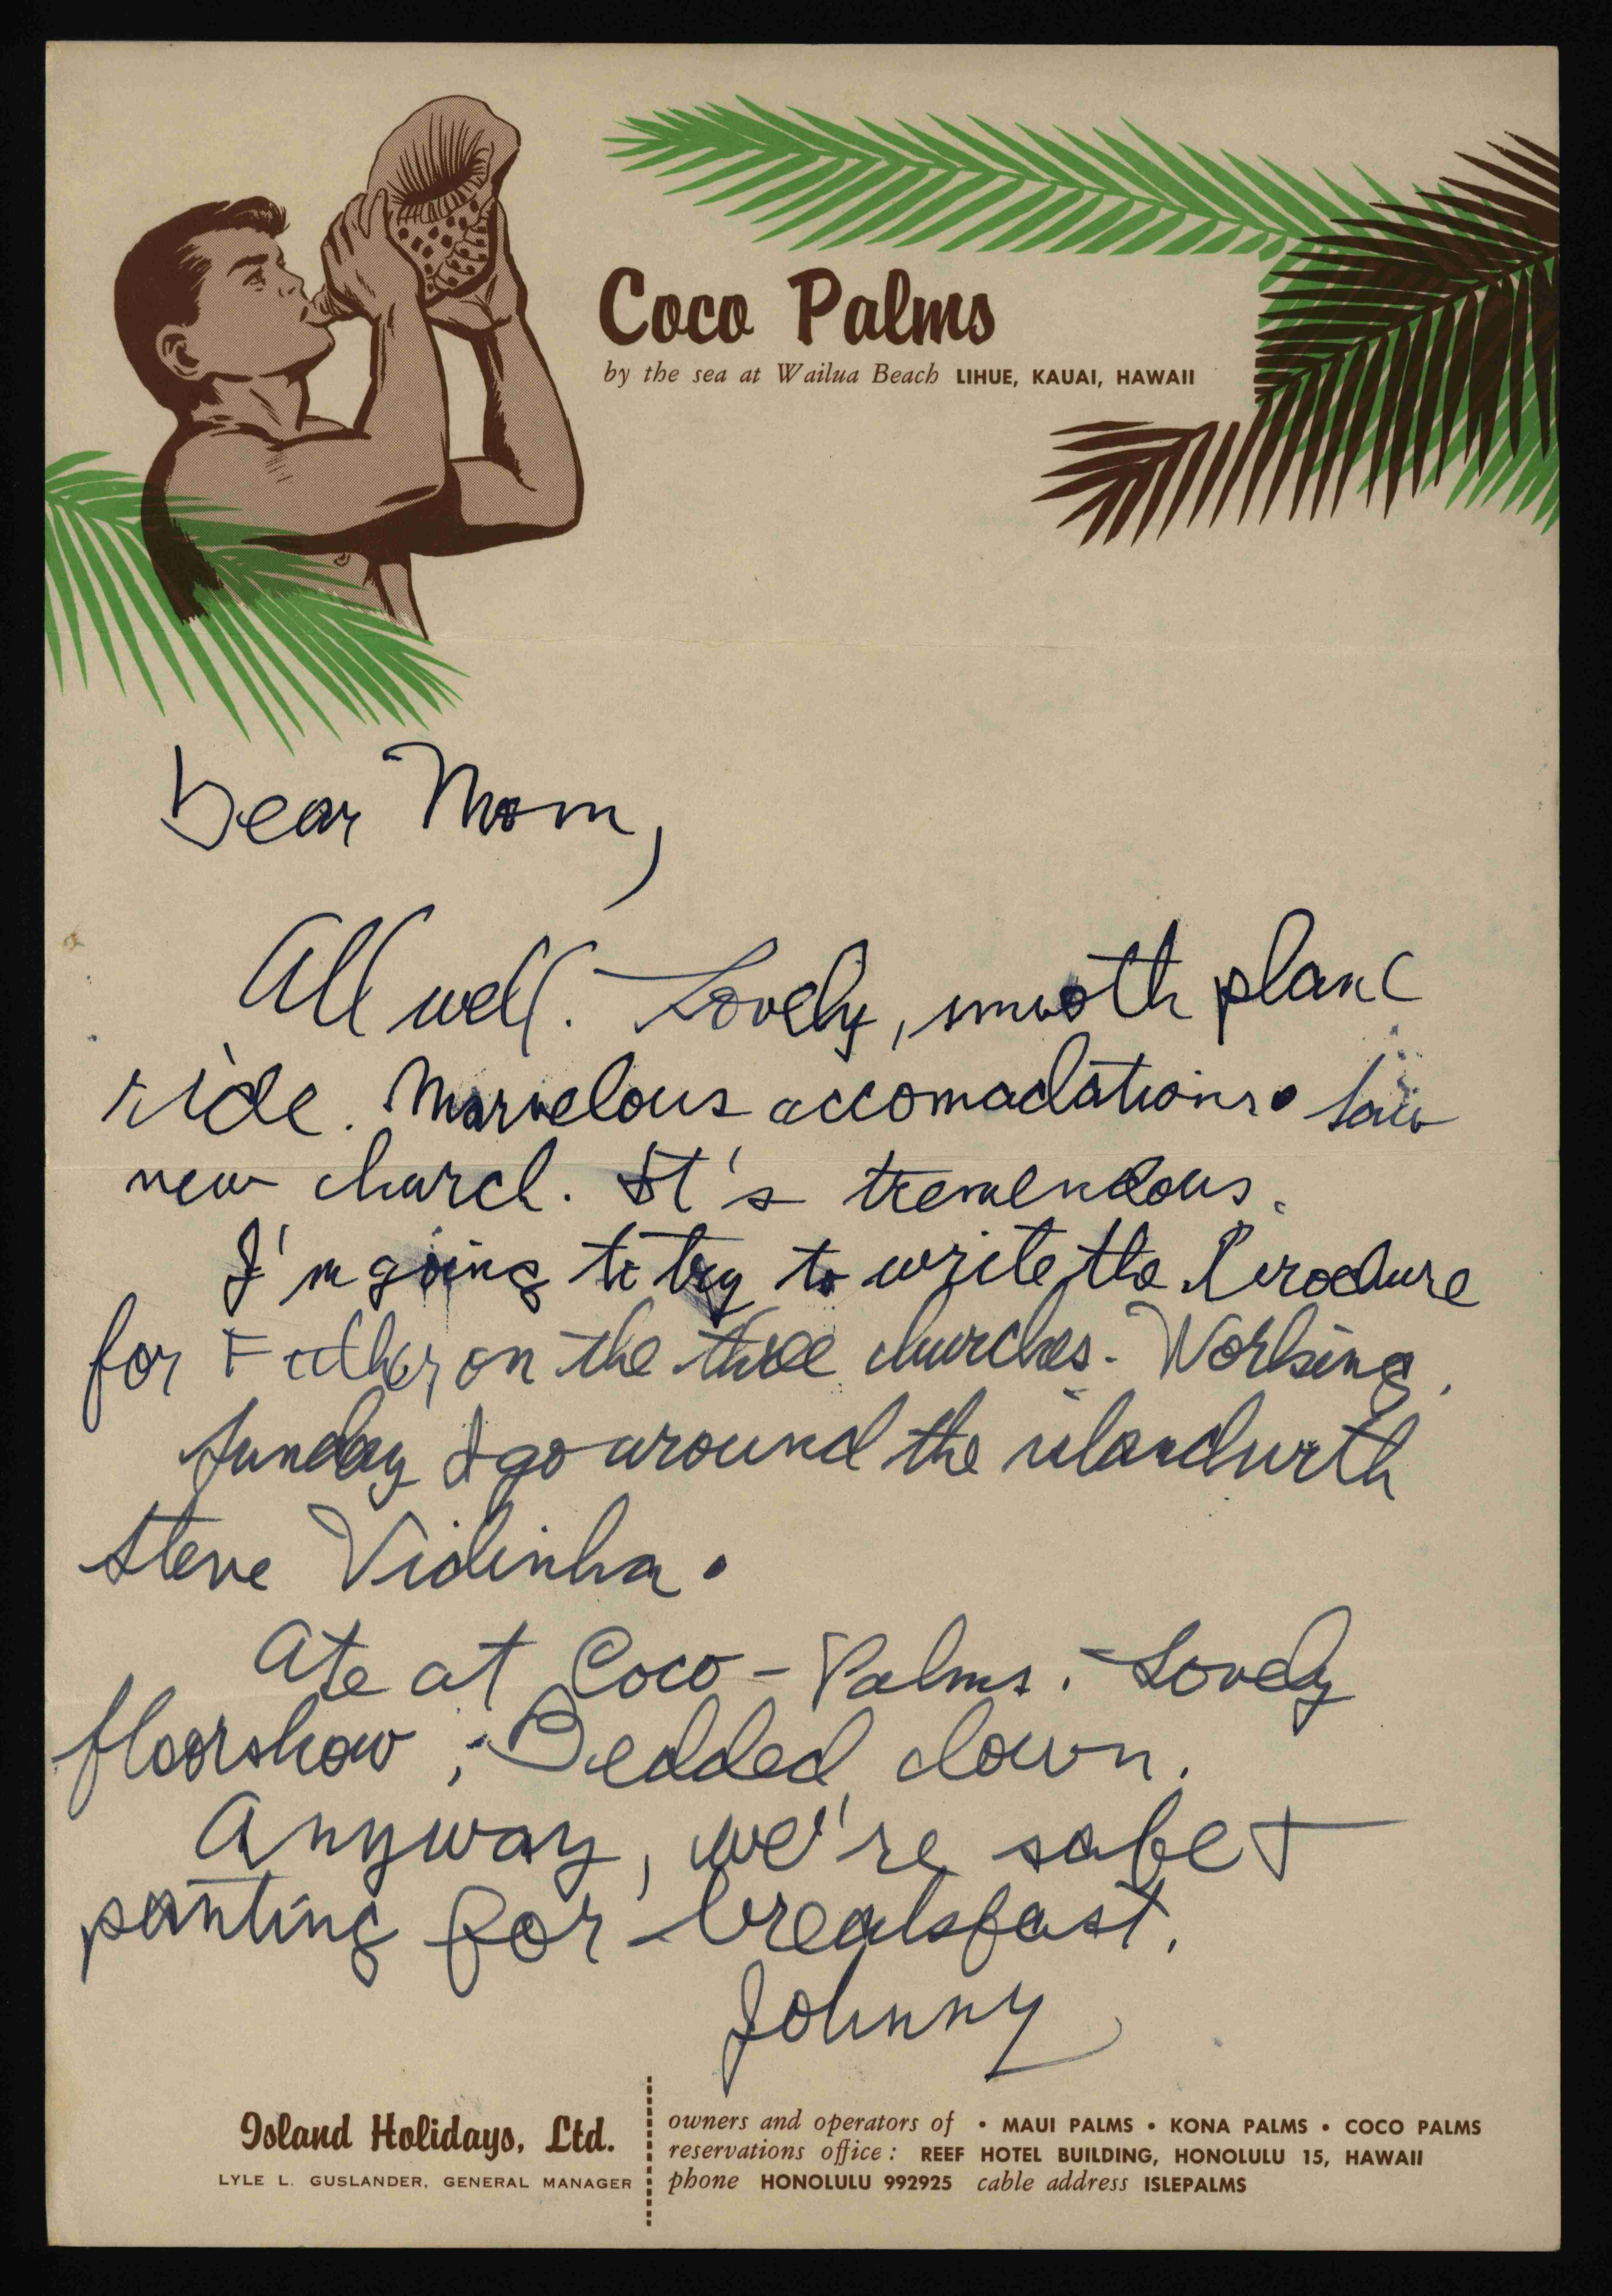 Coco Palms
by the sea at Wailua Beach LIHUE, KAUAI, HAWAII
Dear Mom,
All well. Lovely, smooth plane
ride. Marvelous accomadations. Saw
new church. It's tremendous.
I'm going to try to write the brochure
for Father on the three churches. Working.
Sunday I go around the island with
Steve Vidinha.
Ate at Coco-Palms. Lovely
floorshow; Bedded down.
Anyway, we're safe +
panting for breakfast.
Johnny
Island Holidays, Ltd.
LYLE L. GUSLANDER, GENERAL MANAGER
owners and operators of • MAUI PALMS • KONA PALMS • COCO PALMS
reservations office: REEF HOTEL BUILDING, HONOLULU 15, HAWAII
phone HONOLULU 992925 cable address ISLEPALMS